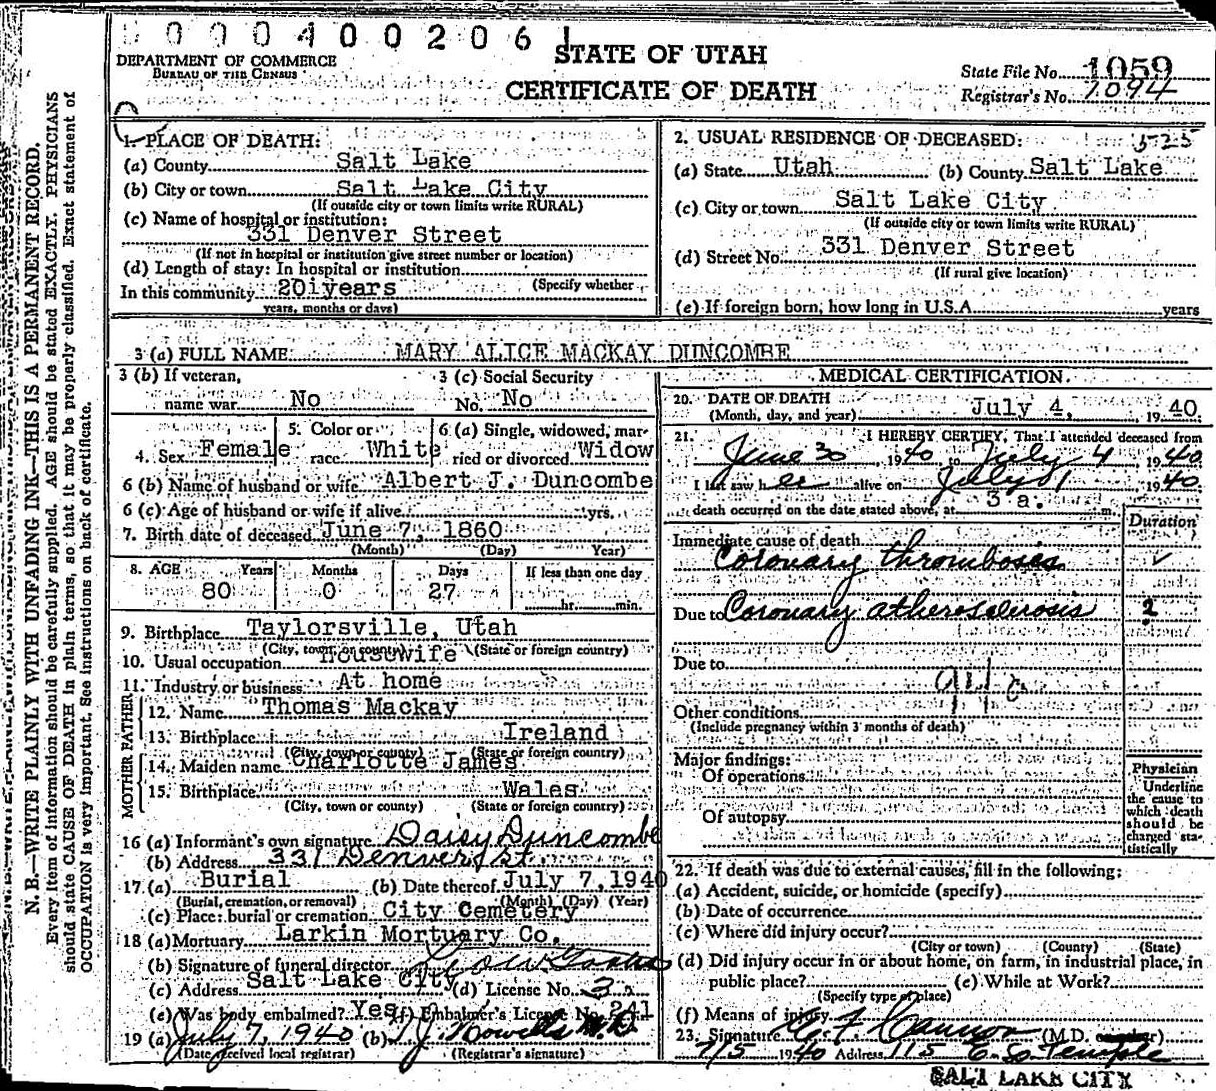 0 0 0 4 0 0 2 0 6 1
DEPARTMENT OF COMMERCE
BUREAU OF THE CENSUS
STATE OF UTAH
CERTIFICATE OF DEATH
State File No. 1059
Registrar's No. 1094
N. B.—WRITE PLAINLY WITH UNFADING INK—THIS IS A PERMANENT RECORD.
Every item of information should be carefully supplied. AGE should be stated EXACTLY. PHYSICIANS
should state CAUSE OF DEATH in plain terms, so that it may be properly classified. Exact statement of
OCCUPATION is very important. See instructions on back of certificate.
1. PLACE OF DEATH:
(a) County Salt Lake
(b) City or town Salt Lake City
(If outside city or town limits write RURAL)
(c) Name of hospital or institution:
331 Denver Street
(If not in hospital or institution give street number or location)
(d) Length of stay: In hospital or institution
(Specify whether
In this community 20 years
years, months or days)
2. USUAL RESIDENCE OF DECEASED: 525
(a) State Utah (b) County Salt Lake
(c) City or town Salt Lake City
(If outside city or town limits write RURAL)
(d) Street No. 331 Denver Street
(If rural give location)
(e) If foreign born, how long in U.S.A. years
3 (a) FULL NAME MARY ALICE MACKAY DUNCOMBE
3 (b) If veteran,
name war No
3 (c) Social Security
No. No
4. Sex Female
5. Color or
race White
6 (a) Single, widowed, mar-
ried or divorced Widow
6 (b) Name of husband or wife Albert J. Duncombe
6 (c) Age of husband or wife if alive yrs.
7. Birth date of deceased June 7, 1860
(Month) (Day) Year)
8. AGE Years Months Days If less than one day
80 0 27 hr. min.
9. Birthplace Taylorsville, Utah
(City, town, or county) (State or foreign country)
10. Usual occupation Housewife
11. Industry or business At home
FATHER
12. Name Thomas Mackay
13. Birthplace Ireland
(City, town or county) (State or foreign country)
MOTHER
14. Maiden name Charlotte James
15. Birthplace Wales
(City, town or county) (State or foreign country)
16 (a) Informant's own signature Daisy Duncombe
(b) Address 331 Denver St.
17. (a) Burial (b) Date thereof July 7, 1940
(Burial, cremation, or removal) (Month) (Day) (Year)
(c) Place: burial or cremation City Cemetery
18 (a) Mortuary Larkin Mortuary Co.
(b) Signature of funeral director
(c) Address Salt Lake City (d) License No. 3
(e) Was body embalmed? Yes (f) Embalmer's License No. 241
19 (a) July 7, 1940 (b)
(Date received local registrar) (Registrar's signature)
MEDICAL CERTIFICATION
20. DATE OF DEATH
(Month, day, and year) July 4, 1940
21. I HEREBY CERTIFY, That I attended deceased from
June 30, 1940 to July 4 1940
I last saw her alive on July 1 1940
death occurred on the date stated above, at 3 a. m.
Duration
Immediate cause of death
Coronary thrombosis ✓
Due to Coronary atherosclerosis 2
Due to
Other conditions
(Include pregnancy within 3 months of death)
Major findings:
Of operations
Of autopsy
Physician
Underline
the cause to
which death
should be
charged sta-
tistically
22. If death was due to external causes, fill in the following:
(a) Accident, suicide, or homicide (specify)
(b) Date of occurrence
(c) Where did injury occur?
(City or town) (County) (State)
(d) Did injury occur in or about home, on farm, in industrial place, in
public place? (e) While at Work?
(Specify type of place)
(f) Means of injury
23. Signature Cannon (M.D.
7/5 1940 Address 115 E. So. Temple
SALT LAKE CITY